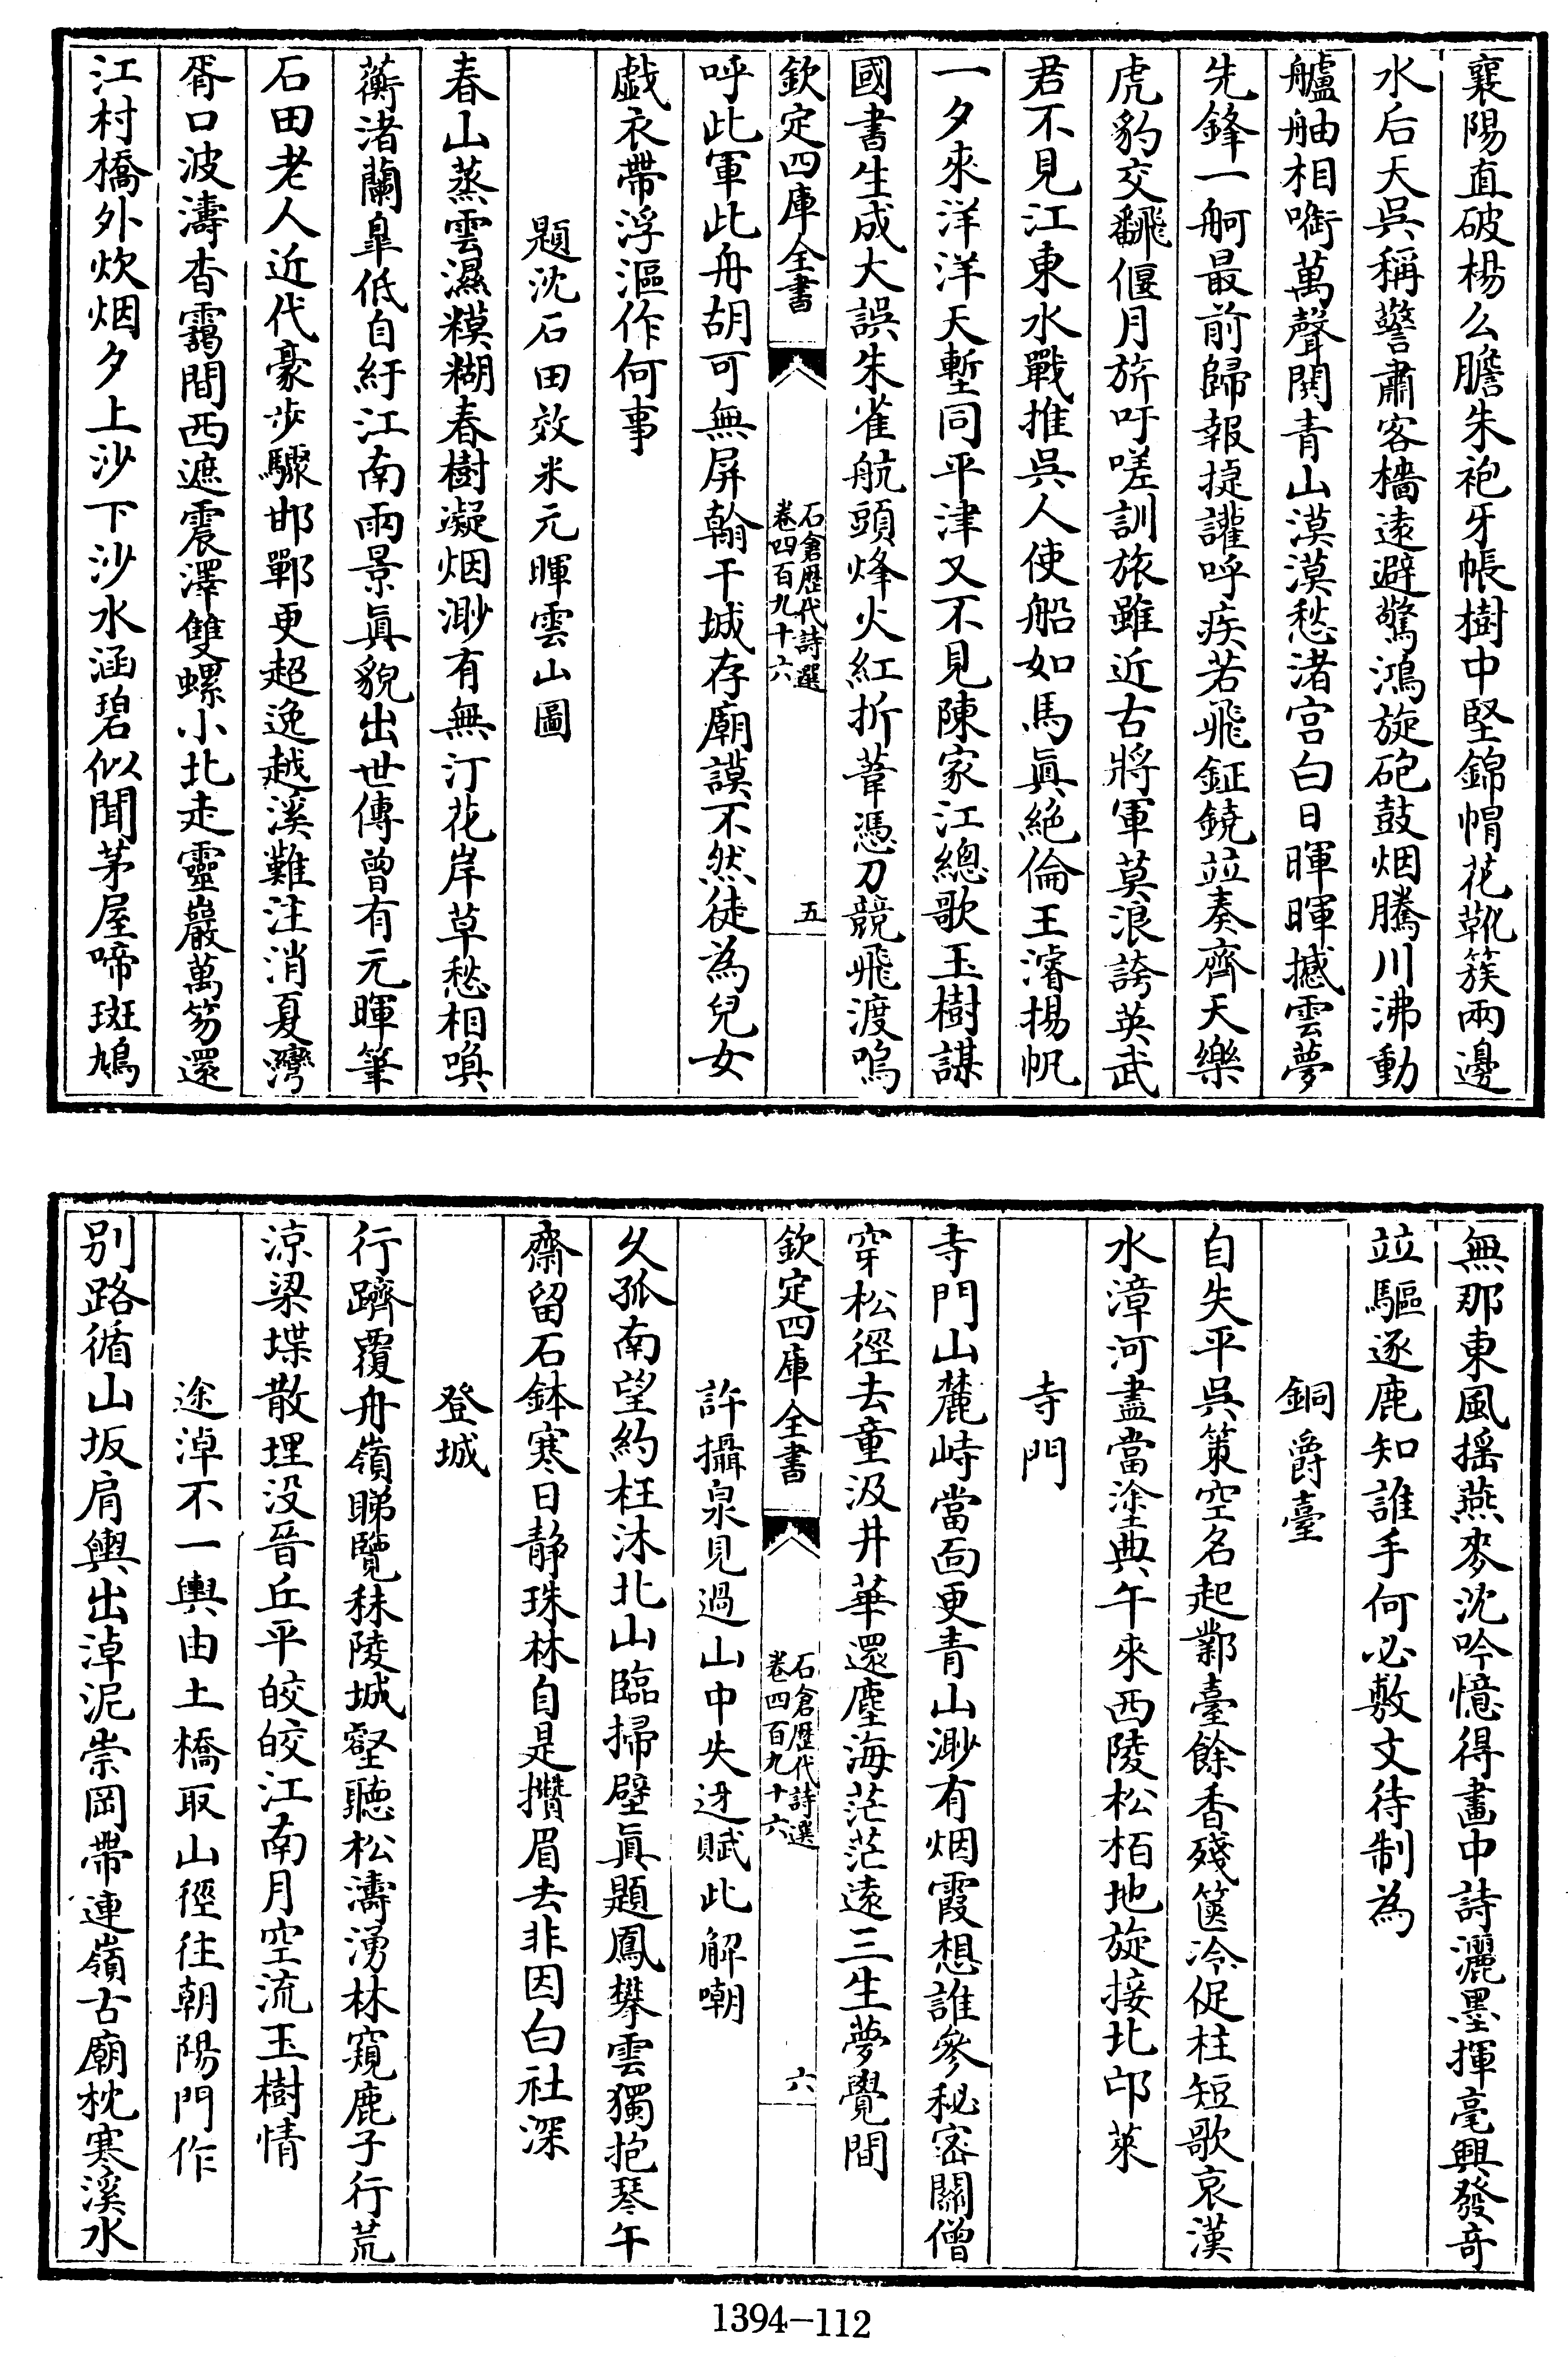 襄陽直破楊么膽朱袍牙帳樹中堅錦㡌花靴簇兩邊
水后天吳稱警肅客檣遠避驚鴻旋砲鼓烟騰川沸動
艫舳相啣萬聲閧青山漠漠愁渚宫白日暉暉撼雲夢
先鋒一舸最前歸報捷讙呼疾若飛鉦鐃竝奏齊天樂
虎豹交飜偃月旂吁嗟訓旅雖近古將軍莫浪誇英武
君不見江東水戰推吳人使船如馬眞絶倫王濬揚帆
一夕來洋洋天塹同平津又不見陳家江總歌玉樹謀
國書生成大誤朱雀航頭烽火紅折葦憑刀競飛渡嗚
欽定四庫全書
石倉歴代詩選
卷四百九十六
五
呼此軍此舟胡可無屏翰干城存廟謨不然徒為兒女
戯衣帶浮漚作何事
題沈石田效米元暉雲山圖
春山蒸雲濕糢糊春樹凝烟渺有無汀花岸草愁相喚
蘅渚蘭臯低自紆江南雨景眞貌出世傳曾有元暉筆
石田老人近代豪步驟邯鄲更超逸越溪難注消夏灣
胥口波濤杳靄間西遮震澤雙螺小北走靈巖萬笏還
江村橋外炊烟夕上沙下沙水涵碧似聞茅屋啼斑鳩
無那東風揺燕麥沈吟憶得畫中詩灑墨揮毫興發竒
竝驅逐鹿知誰手何必敷文待制為
銅爵臺
自失平吳策空名起鄴臺餘香殘篋冷促柱短歌哀漢
水漳河盡當塗典午來西陵松栢地旋接北邙萊
寺門
寺門山麓峙當面更青山渺有烟霞想誰參秘密關僧
穿松徑去童汲井華還塵海茫茫遠三生夢覺間
欽定四庫全書
石倉歴代詩選
卷四百九十六
六
許攝泉見過山中失迓賦此解嘲
久孤南望約枉沐北山臨掃壁眞題鳳攀雲獨抱琴午
齋留石鉢寒日静珠林自是攢眉去非因白社深
登城
行躋覆舟嶺睇覽秣陵城壑聽松濤湧林窺鹿子行荒
涼梁堞散埋没晉丘平皎皎江南月空流玉樹情
途淖不一輿由土橋取山徑往朝陽門作
別路循山坂肩輿出淖泥崇岡帶連嶺古廟枕寒溪水
1394-112